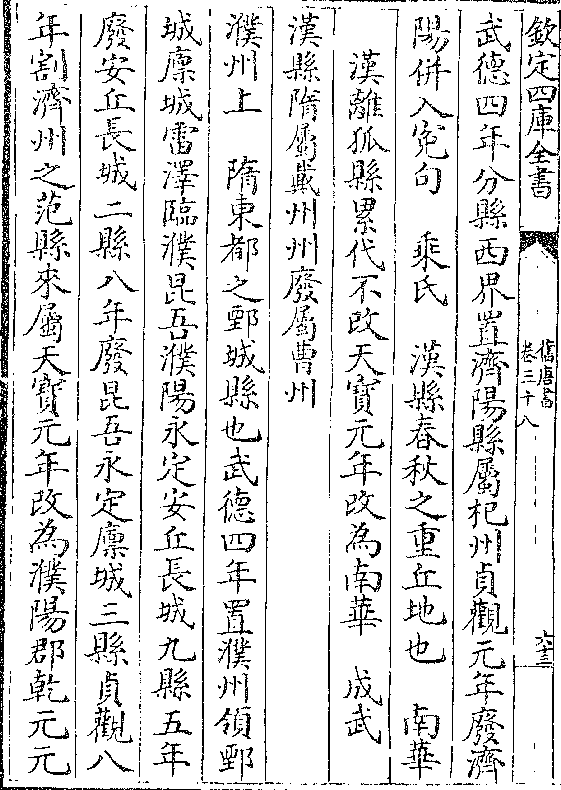 欽定四庫全書
舊唐書
卷三十八
六十三
武德四年分縣西界置濟陽縣屬杞州貞觀元年廢濟
陽併入冤句　乘氏　漢縣春秋之重丘地也　南華
漢離狐縣累代不改天寶元年改為南華　成武
漢縣隋屬戴州州廢屬曹州
濮州上　隋東都之鄄城縣也武德四年置濮州領鄄
城廩城雷澤臨濮昆吾濮陽永定安丘長城九縣五年
廢安丘長城二縣八年廢昆吾永定廩城三縣貞觀八
年割濟州之范縣來屬天寶元年改為濮陽郡乾元元